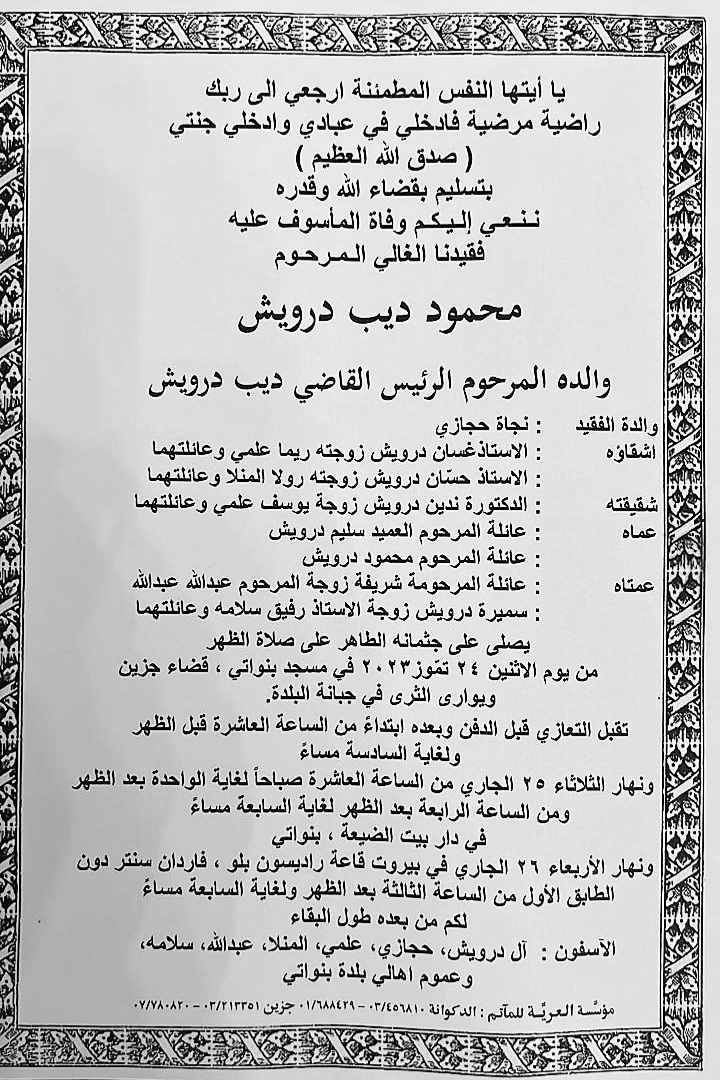 يا أيتها النفس المطمئنة ارجعي الى ربك
راضية مرضية فادخلي في عبادي وادخلي جنتي
( صدق الله العظيم )
بتسليم بقضاء الله وقدره
ننعي إليكم وفاة المأسوف عليه
فقيدنا الغالي المرحوم
محمود ديب درويش
والده المرحوم الرئيس القاضي ديب درويش
والدة الفقيد : نجاة حجازي
اشقاؤه : الاستاذغسان درويش زوجته ريما علمي وعائلتهما
: الاستاذ حسّان درويش زوجته رولا المنلا وعائلتهما
شقيقته : الدكتورة ندين درويش زوجة يوسف علمي وعائلتهما
عماه : عائلة المرحوم العميد سليم درويش
: عائلة المرحوم محمود درويش
عمتاه : عائلة المرحومة شريفة زوجة المرحوم عبدالله عبدالله
: سميرة درويش زوجة الاستاذ رفيق سلامه وعائلتهما
يصلى على جثمانه الطاهر على صلاة الظهر
من يوم الاثنين ٢٤ تمّوز٢٠٢٣ في مسجد بنواتي ، قضاء جزين
ويوارى الثرى في جبانة البلدة.
تقبل التعازي قبل الدفن وبعده ابتداءً من الساعة العاشرة قبل الظهر
ولغاية السادسة مساءً
ونهار الثلاثاء ٢٥ الجاري من الساعة العاشرة صباحاً لغاية الواحدة بعد الظهر
ومن الساعة الرابعة بعد الظهر لغاية السابعة مساءً
في دار بيت الضيعة ، بنواتي
ونهار الأربعاء ٢٦ الجاري في بيروت قاعة راديسون بلو ، فاردان سنتر دون
الطابق الأول من الساعة الثالثة بعد الظهر ولغاية السابعة مساءً
لكم من بعده طول البقاء
الآسفون : آل درويش، حجازي، علمي، المنلا، عبدالله، سلامه،
وعموم اهالي بلدة بنواتي
مؤسَّسة العريَّة للمآتم : الدكوانة ٠٣/٤٥٦٨١٠ – ٠١/٦٨٨٤٢٩ جزين ٠٣/٢١٣٣٥١ – ٠٧/٧٨٠٨٢٠